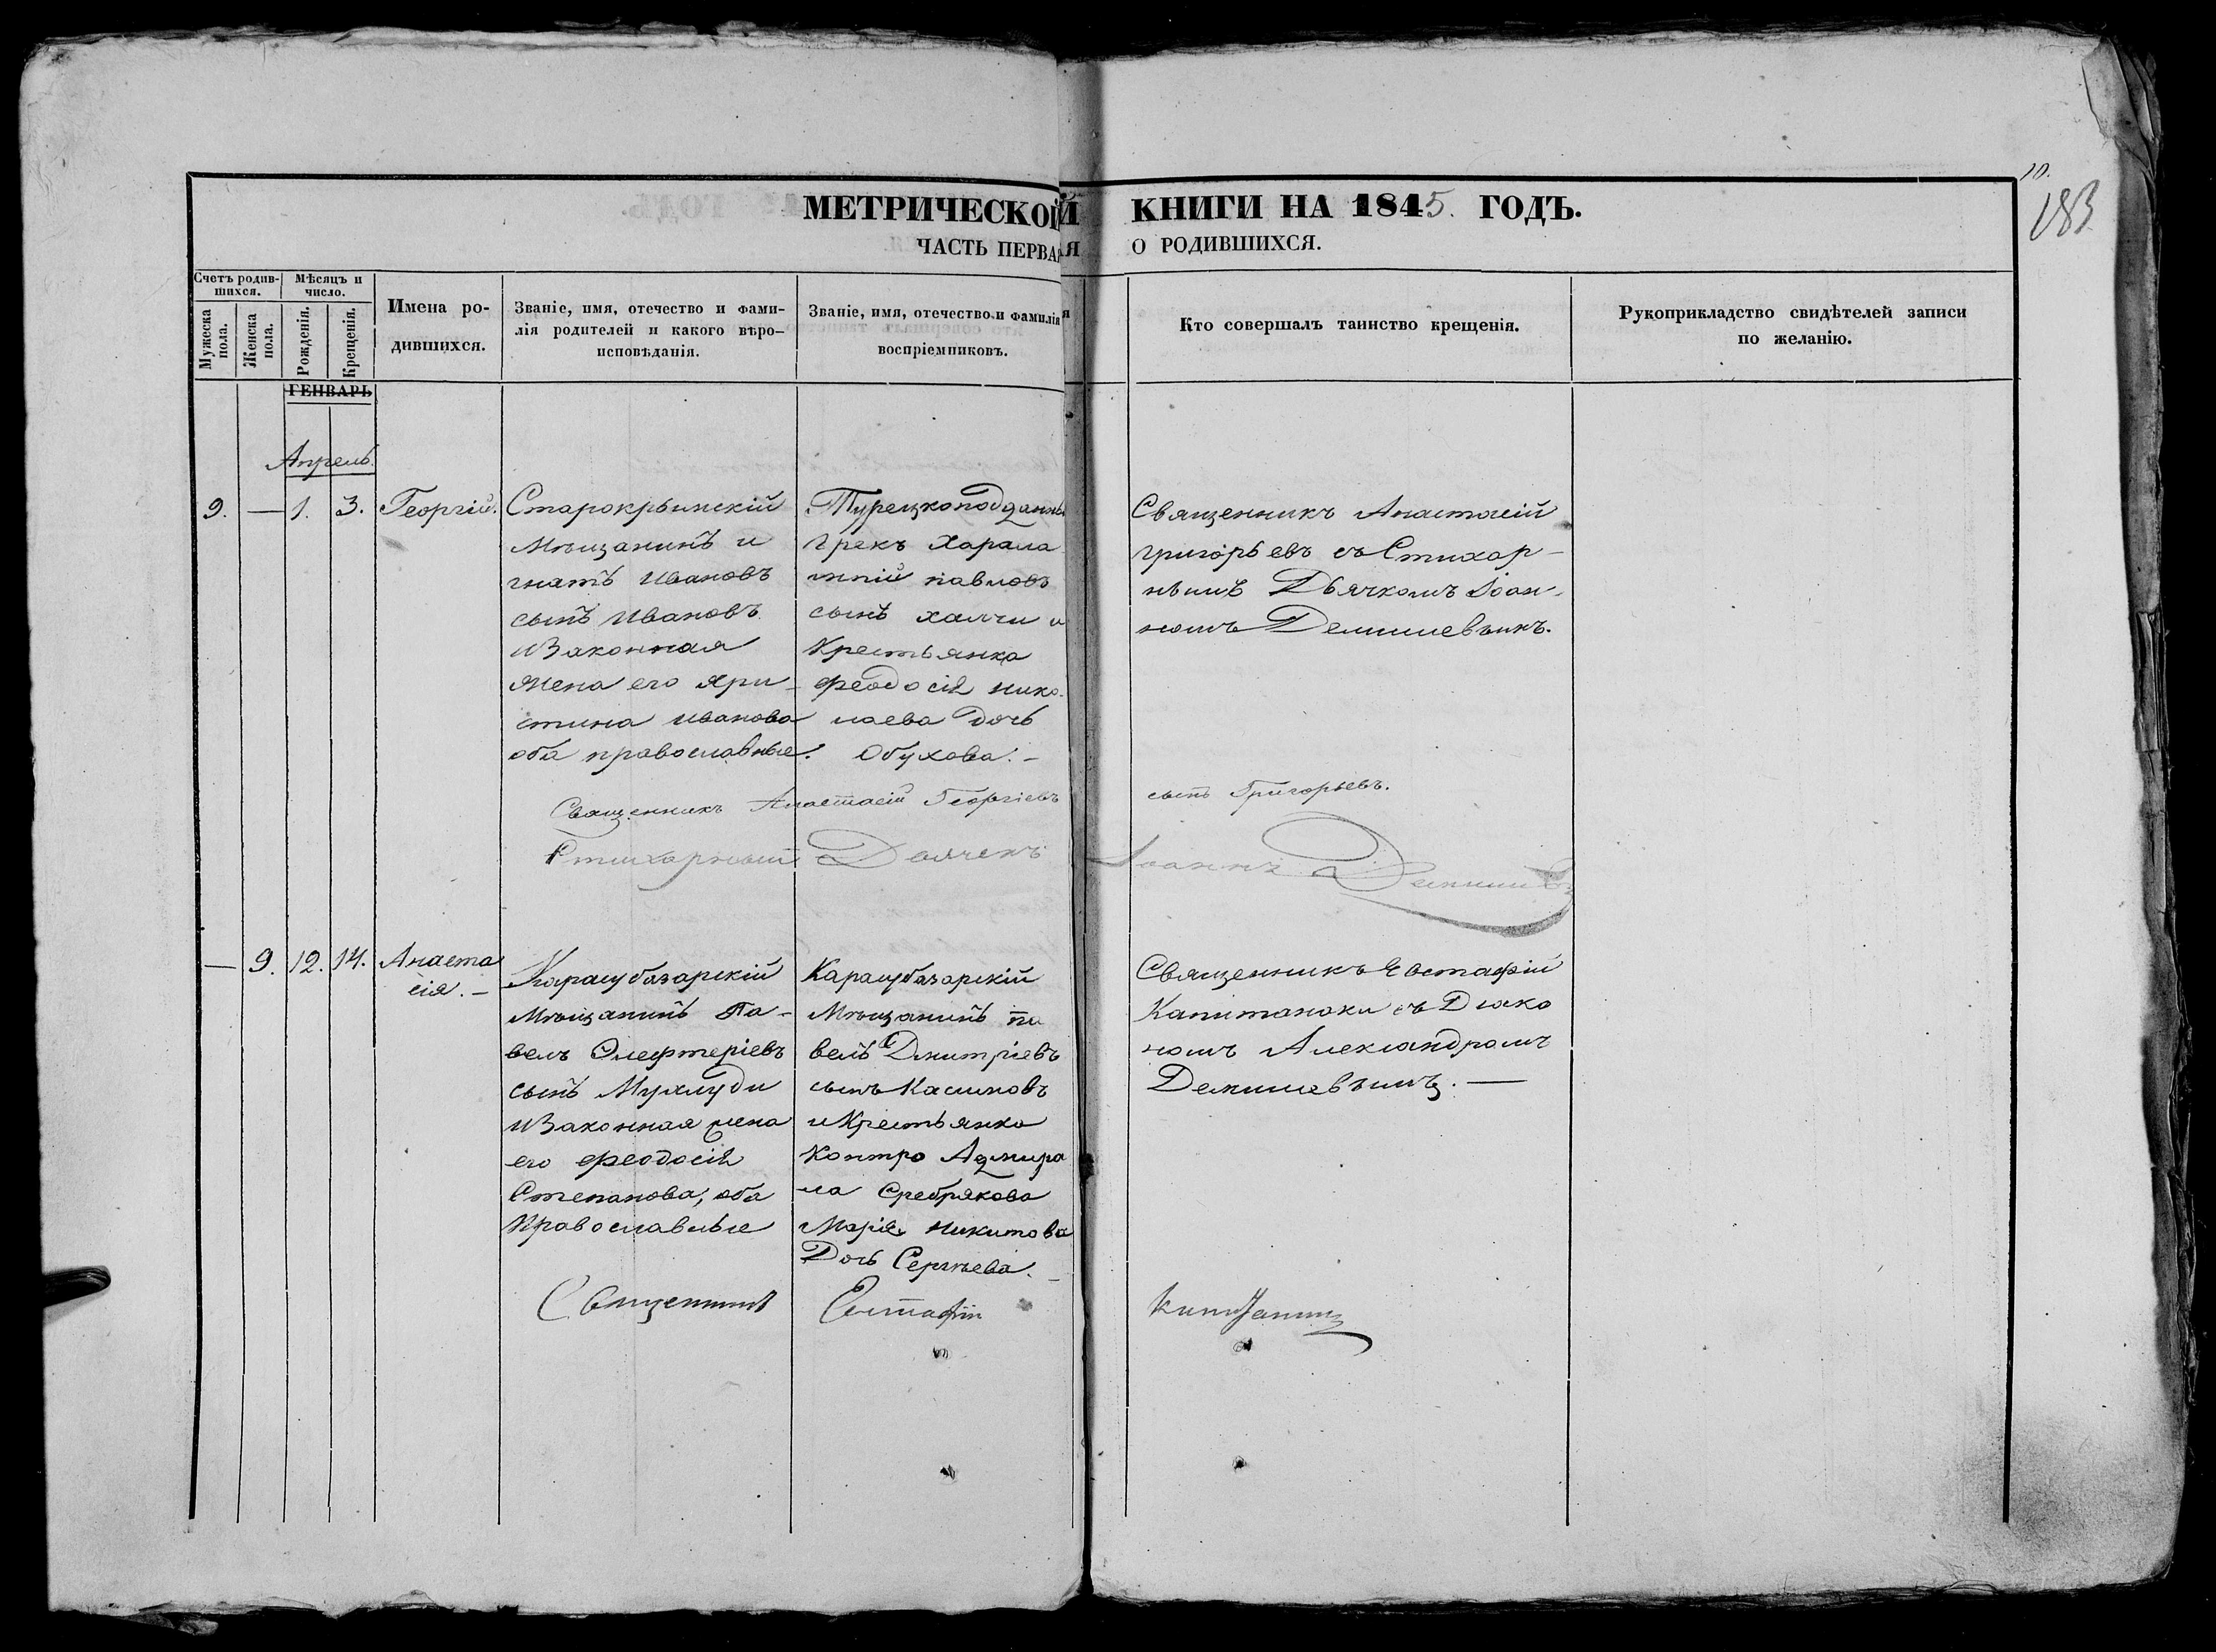 10.
183
МЕТРИЧЕСКОЙ КНИГИ НА 1845. ГОДЪ.
ЧАСТЬ ПЕРВАЯ О РОДИВШИХСЯ.
Счетъ родив-
шихся.
Мужеска
пола.
Женска
пола.
Мѣсяцъ и
число.
Рожденія.
Крещенія.
Имена ро-
дившихся.
Званіе, имя, отечество и фами-
лія родителей и какого вѣро-
исповѣданія.
Званіе, имя, отечество и фамилія
воспріемниковъ.
Кто совершалъ таинство крещенія.
Рукоприкладство свидѣтелей записи
по желанію.
ГЕНВАРЬ
Апрель
9. — 1. 3. Георгій.
Старокрымскій
Мѣщанинъ и
гнатъ Ивановъ
сынъ Ивановъ
и Законная
жена его Хри-
стина Иванова
оба православные.
Турецкоподданны
грекъ Харала
мпій павловъ
сынъ халчи и
Крестьянка
Феодосія Нико-
лаева дочь
Обухова. –
Священникъ Анастасій
григорьевъ съ Стихар-
нымъ Дьячкомъ Іоан-
номъ
Священникъ Анастасій Георгіевъ сынъ Григорьевъ.
Стихарный Дьячекъ Іоаннъ
— 9. 12. 14. Анаста
сія. –
Карасубазарскій
Мѣщанинъ Па-
велъ Элефтеріевъ
сынъ
и Законная жена
его Феодосія
Степанова, оба
Православные
Карасубазарскій
Мѣщанинъ Па
велъ Дмитріевъ
сынъ Касимовъ
и Крестьянка
Контро Адмира
ла Сребрякова
Марія Никитова
Дочь Сергѣева. –
Священникъ Евстафій
Капитанаки съ Діако
номъ Александромъ
Священникъ Евстафій